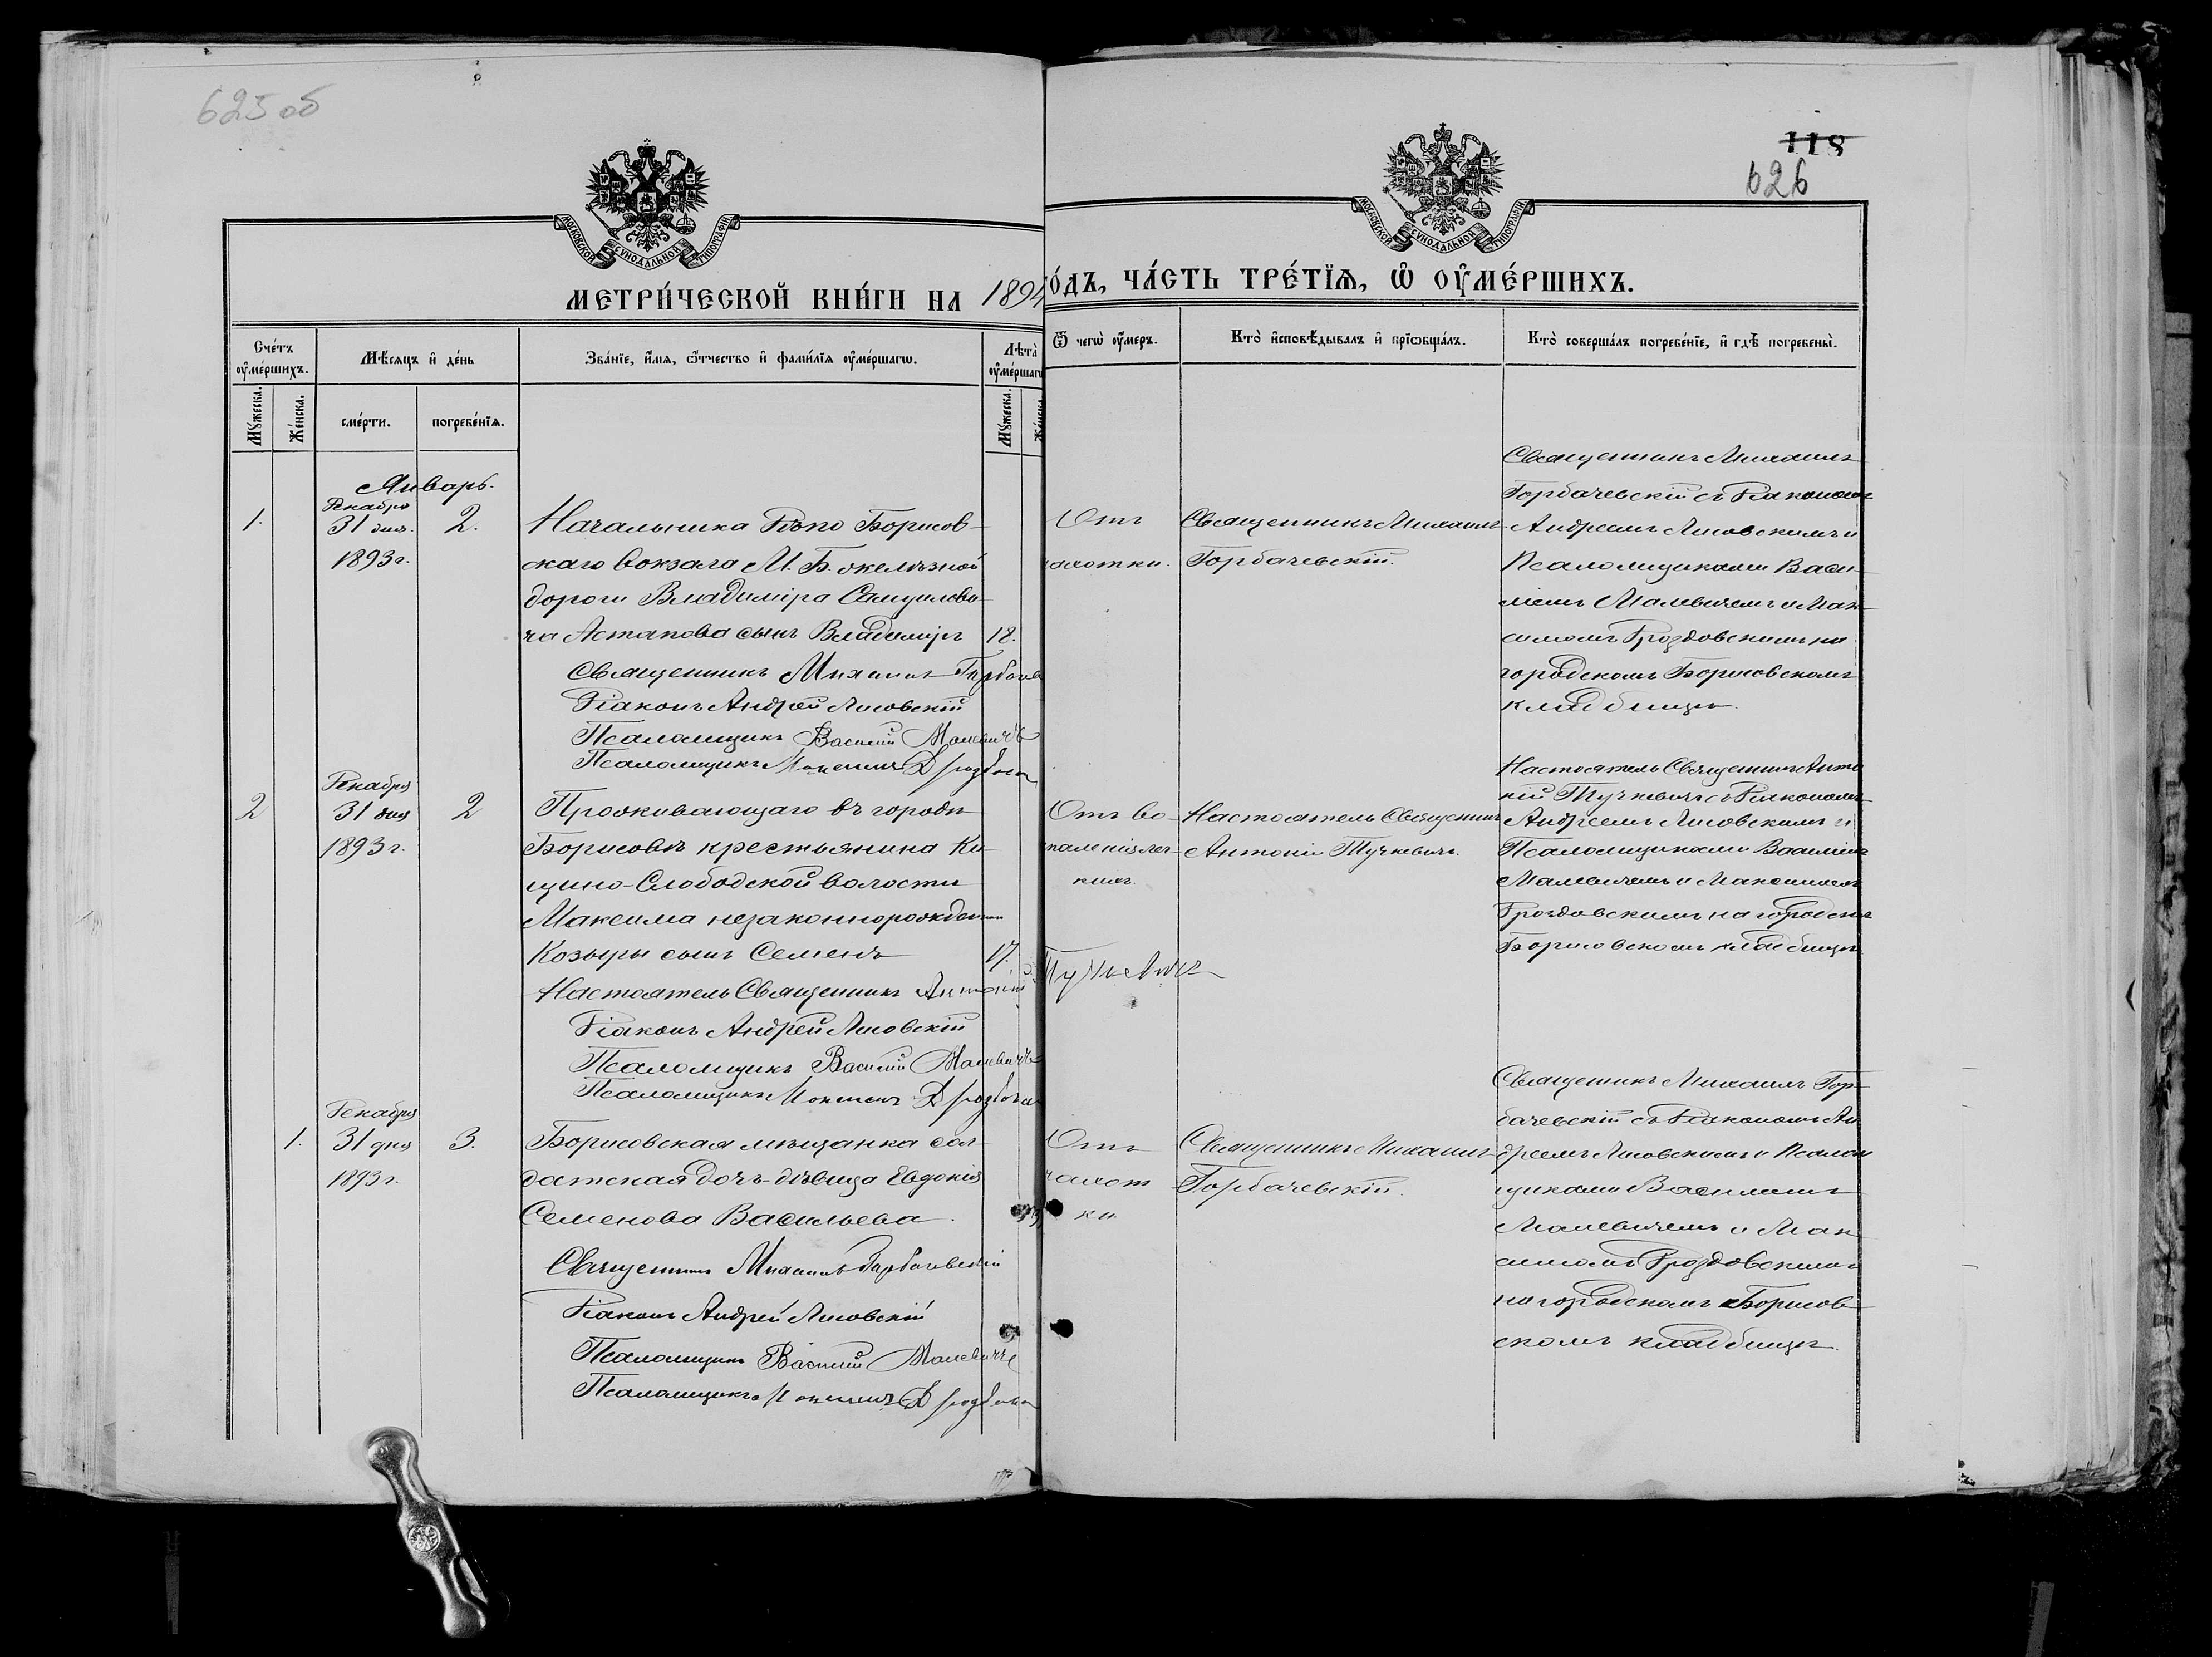 625 об
118
626
МОСКОВСКОЙ СѴНОДАЛЬНОЙ ТИПОГРАФІИ
МОСКОВСКОЙ СѴНОДАЛЬНОЙ ТИПОГРАФІИ
МЕТРИ́ЧЕСКОЙ КНИ́ГИ НА 1894
ГО́ДЪ, ЧА́СТЬ ТРЕ́ТЇѦ, Ѽ ОУ҆МЕ́РШИХЪ.
Сче́тъ оу҆ме́ршихъ.
Мѣ́сѧцъ и҆ де́нь
Зва́нїе, и҆́мѧ, ѻ҆́тчество и҆ фами́лїѧ оу҆ме́ршагѡ.
Лѣ́та оу҆ме́ршагѡ
Ѿ чегѡ̀ оу҆́меръ.
Кто̀ и҆сповѣ́дывалъ и҆ прїѡбща́лъ.
Кто̀ соверша́лъ погребе́нїе, и҆ гдѣ̀ погребены̀.
Мꙋ́жеска.
Же́нска.
сме́рти.
погребе́нїѧ.
Мꙋ́жеска.
Же́нска
Январь.
Декабря
1.
31 дня.
2.
1893 г.
Начальника Депо Борисов-
скаго вокзала М. Б. желѣзной
дороги Владиміра Самуилови-
ча Астапова сынъ Владиміръ
18.
Священникъ Михаилъ Горбачев
Діаконъ Андрей Лисовскій
Псаломщикъ Василій Малевичъ
Псаломщикъ Максимъ Дроздов
Отъ
чахотки.
Священникъ Михаилъ
Горбачевскій.
Священникъ Михаилъ
Горбачевскій съ Діакономъ
Андреемъ Лисовскимъ и
Псаломщиками Васи-
ліемъ Малевичемъ и Мак-
симомъ Дроздовскимъ на
городскомъ Борисовскомъ
кладбищѣ.
Декабря
2
31 дня
2
1893 г.
Проживающаго въ городѣ
Борисовѣ крестьянина Ки-
щино-Слободской волости
Максима незаконнорожден
Козыры сынъ Семенъ
17.
Настоятель Священникъ Антоній
Тучкевичъ
Діаконъ Андрей Лисовскій
Псаломщикъ Василій Малевичъ
Псаломщикъ Максимъ Дроздов
Отъ во-
спаленія лег-
кихъ.
Настоятель Священникъ
Антоній Тучкевичъ.
Настоятель Священникъ Анто
ній Тучкевичъ съ Діакономъ
Андреемъ Лисовскимъ и
Псаломщиками Василіемъ
Малевичемъ и Максимомъ
Дроздовскимъ на городском
Борисовскомъ кладбищѣ
Декабря
1.
31 дня
3.
1893 г.
Борисовская мѣщанка сол-
датская дочь-дѣвица Евдокія
Семенова Васильева.
Священникъ Михаилъ Горбачевскій
Діаконъ Андрей Лисовскій
Псаломщикъ Василій Малевичъ
Псаломщикъ Максимъ Дроздов
Отъ
чахот
ки.
Священникъ Михаилъ
Горбачевскій.
Священникъ Михаилъ Гор-
бачевскій съ Діакономъ Ан
дреемъ Лисовскимъ и Псалом
щиками Василіемъ
Малевичемъ и Мак
симомъ Дроздовскимъ
на городскомъ Борисов-
скомъ кладбищѣ.